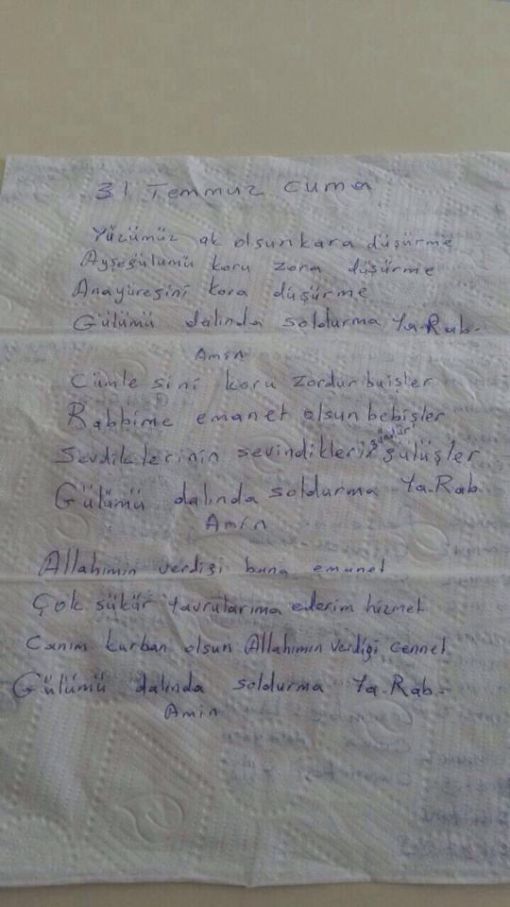 31 Temmuz cuma
Yüzümüz ak olsun kara düşürme
Ayşegülümü koru zora düşürme
Anayüreğini kora düşürme
Gülümü dalında soldurma Ya-Rab-
Amin
Cümlesini koru zordur bu işler
Rabbime emanet olsun bebişler
Sevdiklerinin sevindikleri gülüşler
Gülümü dalında soldurma Ya-Rab
Amin
Allahımın verdiği bana emanet
Çok şükür yavrularıma ederim hizmet
Canım kurban olsun Allahımın verdiği cennet
Gülümü dalında soldurma Ya-Rab-
Amin